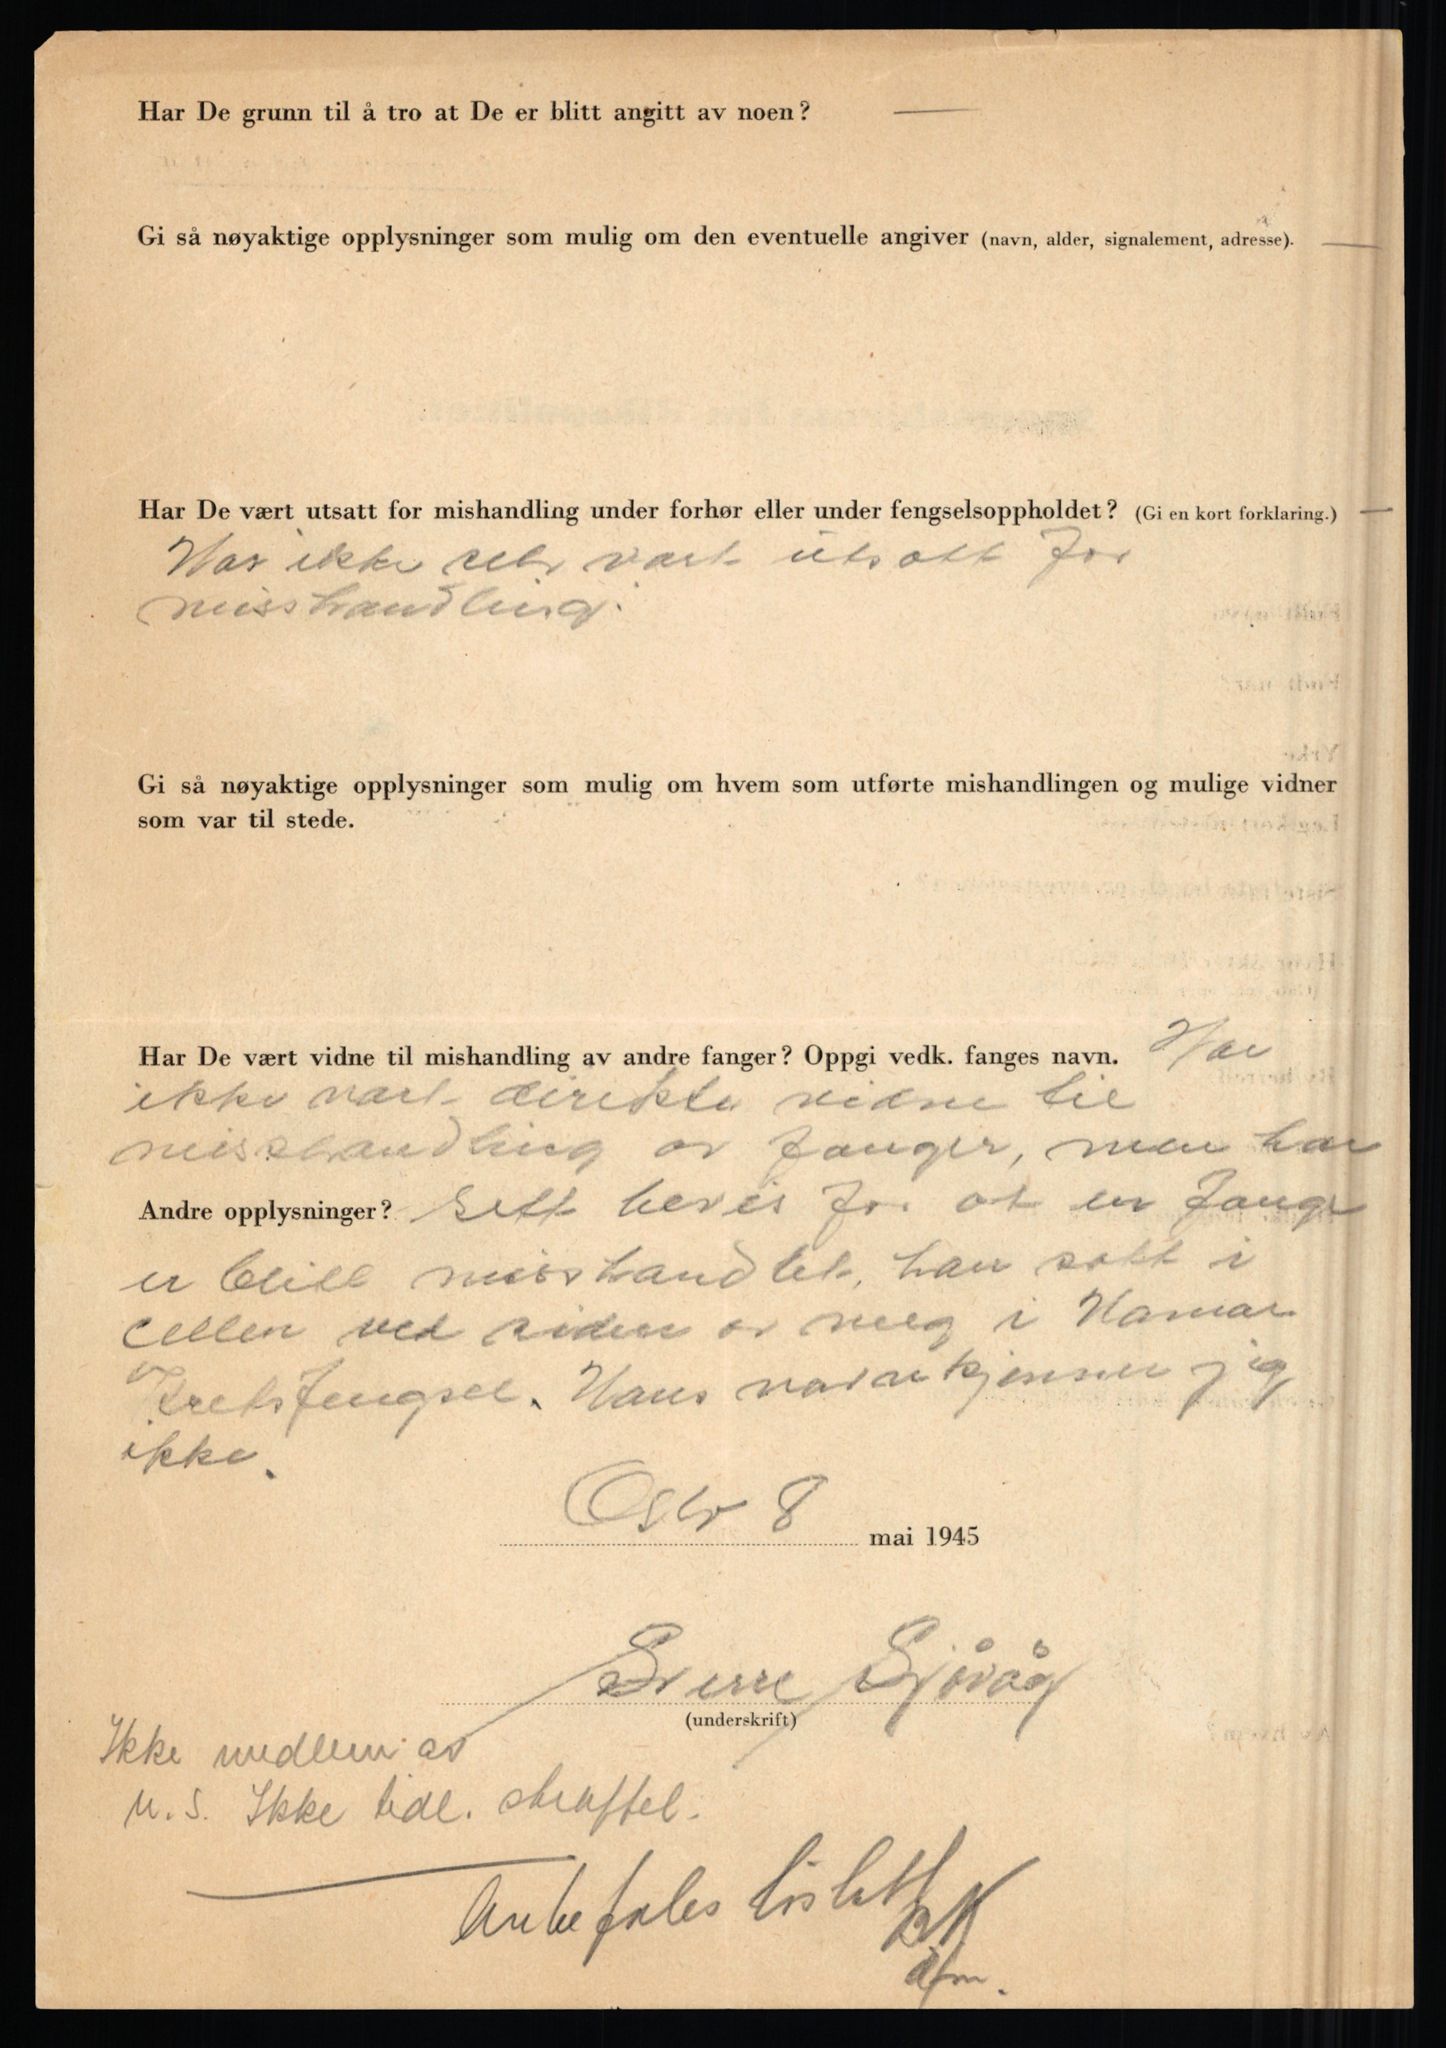 Har De grunn til å tro at De er blitt angitt av noen? —
Gi så nøyaktige opplysninger som mulig om den eventuelle angiver (navn, alder, signalement, adresse). —
Har De vært utsatt for mishandling under forhør eller under fengselsoppholdet? (Gi en kort forklaring.) —
Har ikke selv vært utsatt for
misshandling.
Gi så nøyaktige opplysninger som mulig om hvem som utførte mishandlingen og mulige vidner
som var til stede.
Har De vært vidne til mishandling av andre fanger? Oppgi vedk. fanges navn. Har
ikke vært direkte vidne til
misshandling av fanger, men har
Andre opplysninger? sett bevis for at en fange
er blitt misshandlet, han satt i
cellen ved siden av meg i Hamar
Kretsfengsel. Hans navn kjenner jeg
ikke.
Oslo 8 mai 1945
Sverre Sjåvåg
(underskrift)
Ikke medlem av
N.S. Ikke tidl. straffet.
Anbefales løslatt